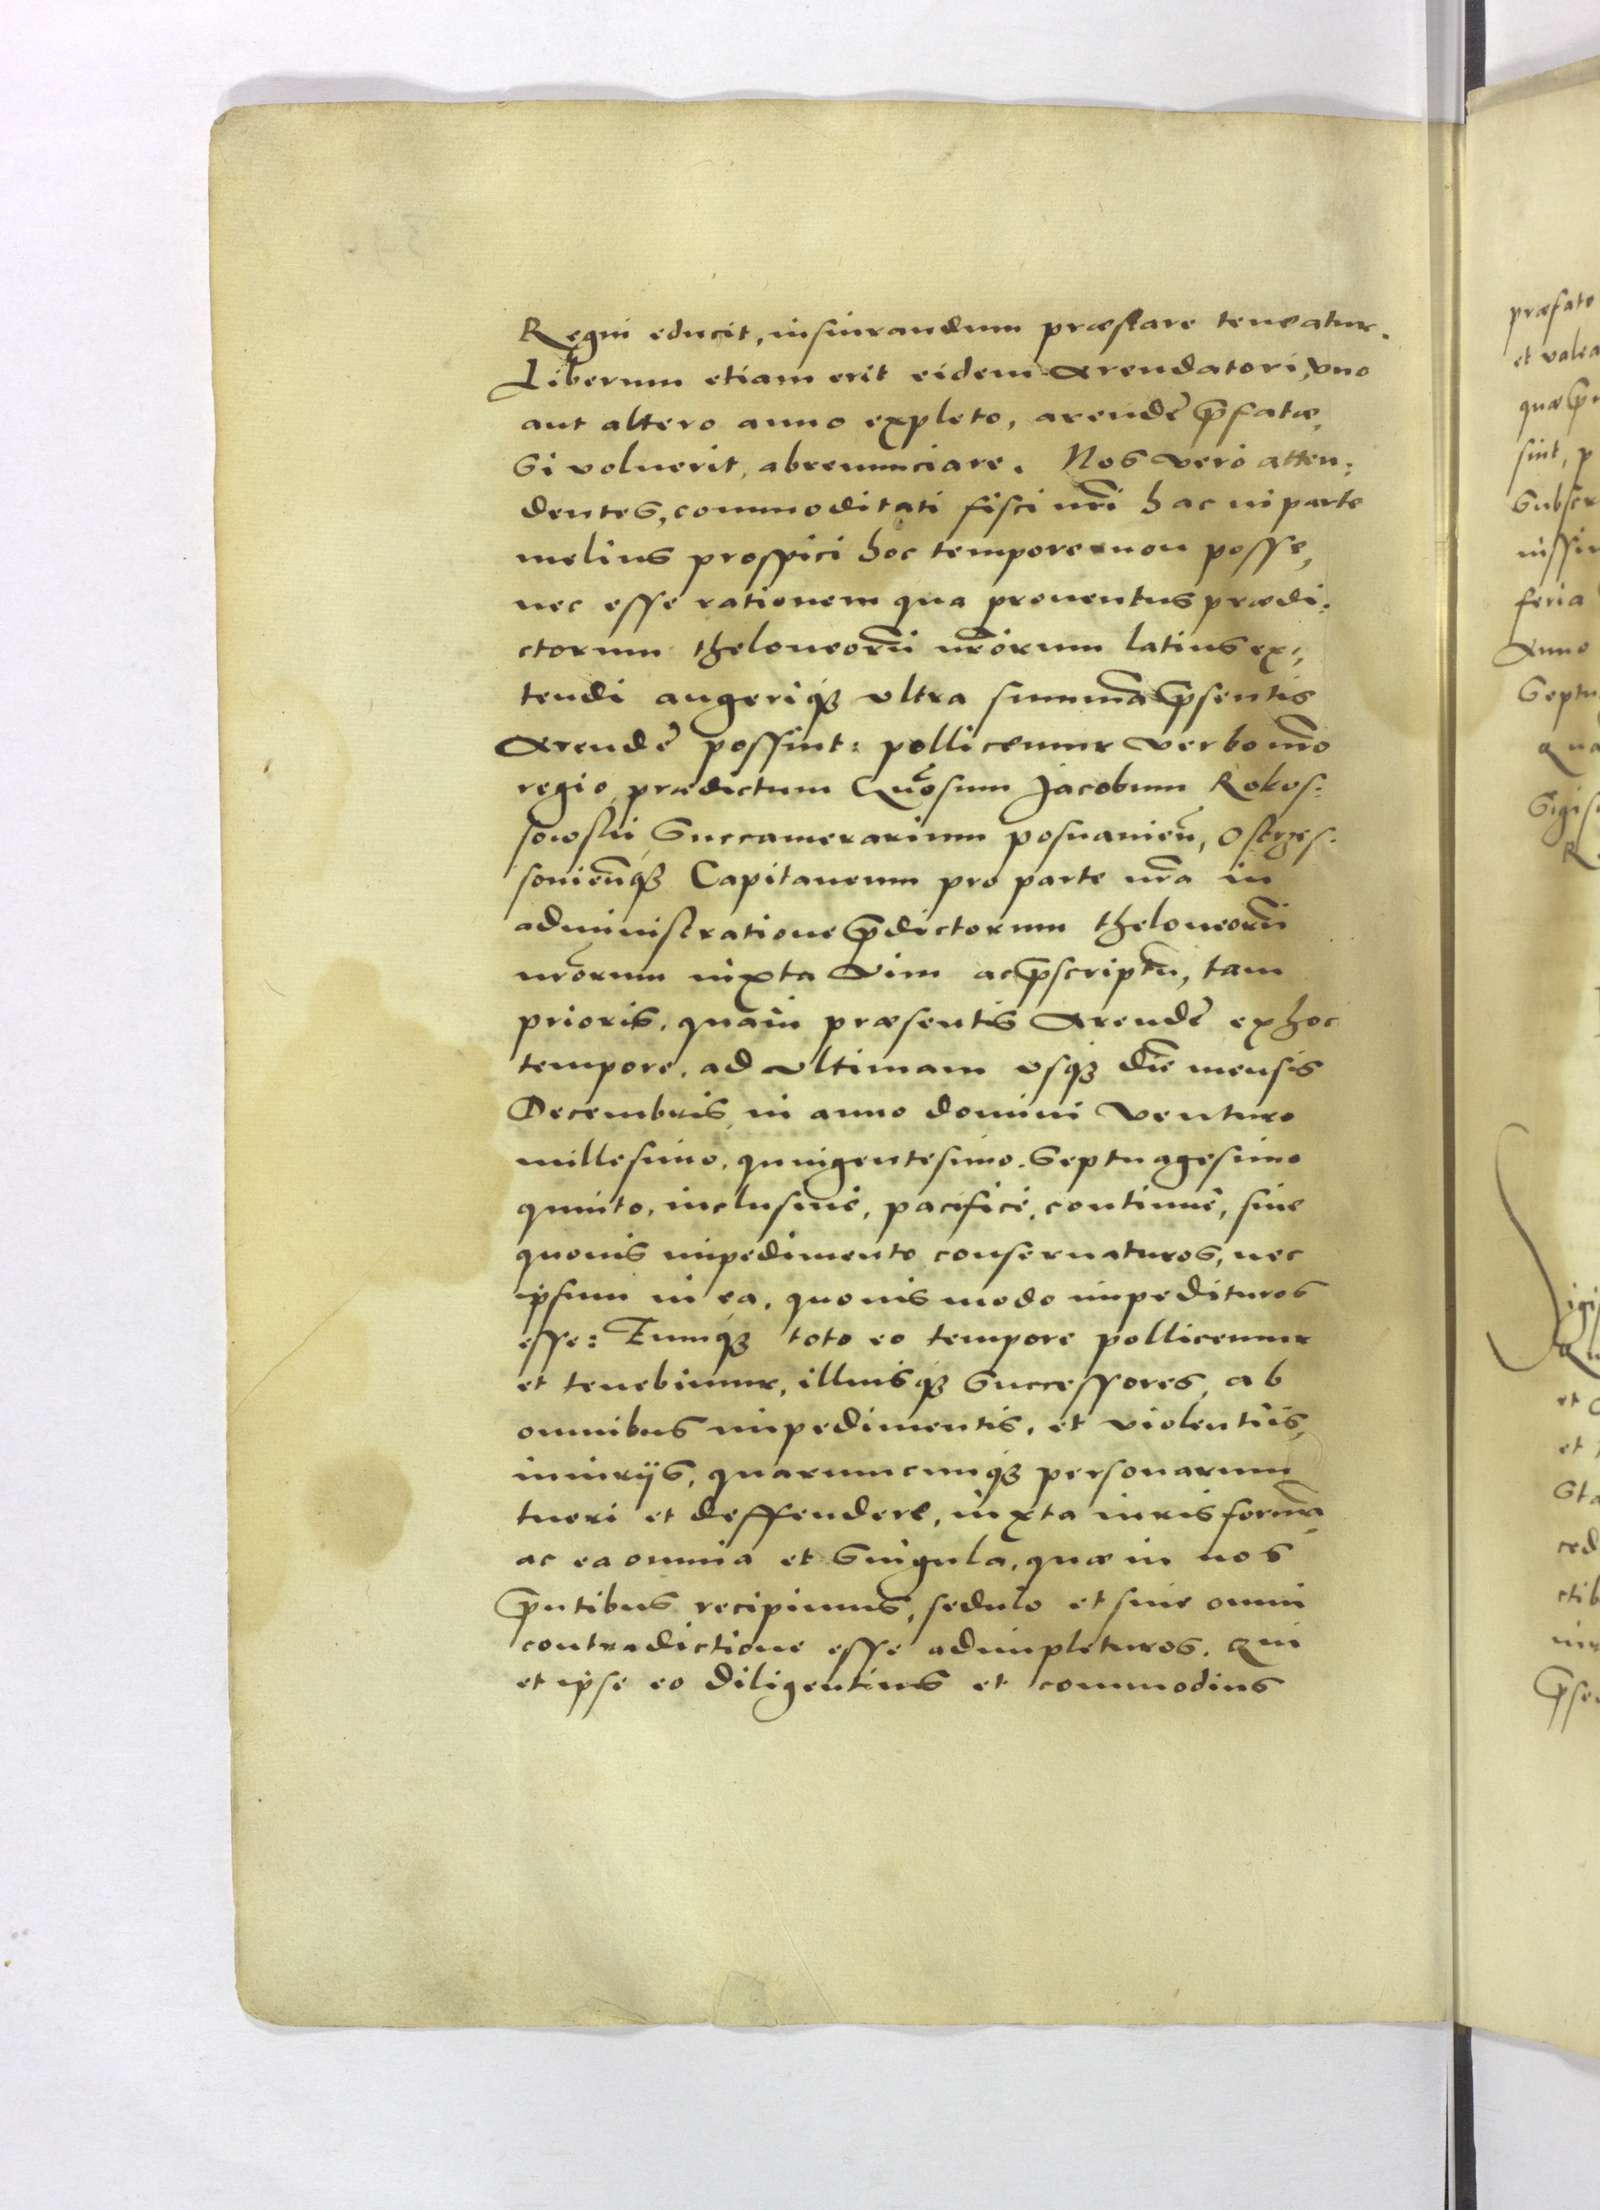 Regni educit, iusiurandum præstare teneatur.
Liberum etiam erit eidem Arendatori, vno
aut altero anno expleto, arendę p̄fatæ,
Si voluerit, abrenunciare. Nos vero atten:
dentes, commoditati fisci nr̄i hac in parte
melius prospici hoc tempore non posse,
nec esse rationem qua prouentus prædi:
ctorum theloneorū nr̄orum latius ex:
tendi augeriq3 vltra summā p̄sentis
Arendę possint: pollicemur verbo nr̄o
regio, prædictum Gn̄osum Jacobum Rokos:
sowski Succamerarium posnanień, Ostrzes:
sonieńq3 Capitaneum pro parte nr̄a in
administratione p̄dictorum theloneorū
nr̄orum iuxta vim ac p̄scriptū, tam
prioris, quam præsentis Arendę ex hoc
tempore, ad vltimam vsq3 diē mensis
Decembris, in anno domini venturo
millesimo, quingentesimo, Septuagesimo
quinto, inclusiue, pacifice, continuè, sine
quouis impedimento conseruaturos, nec
ipsum in ea, quouis modo impedituros
esse: Eumq3 toto eo tempore pollicemur
et tenebimur, illiusq3 Successores, ab
omnibus impedimentis, et violentiis,
iniurijs, quarumcunq3 personarum
tueri et deffendere, iuxta iuris formā,
ac ea omnia et Singula, quæ in nos
p̄ntibus recipimus, sedulo et sine omni
contradictione esse adimpleturos. Qui
et ipse eo diligentius et commodius
præfato
et valea
quæ p̄
sint, p
Subscr
nissim
feria
Anno
Septu
Qua
Sigis
R
igi
Au
et
et
Sta
ced
ctib
p̄se